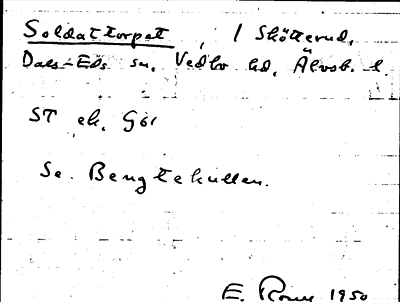 Soldattorpet, / Skötterud,
Dals-Eds sn. Vedbo hd, Älvsb. l.
ST ek. Gör
Se. Bengtekullen.
E. 1950